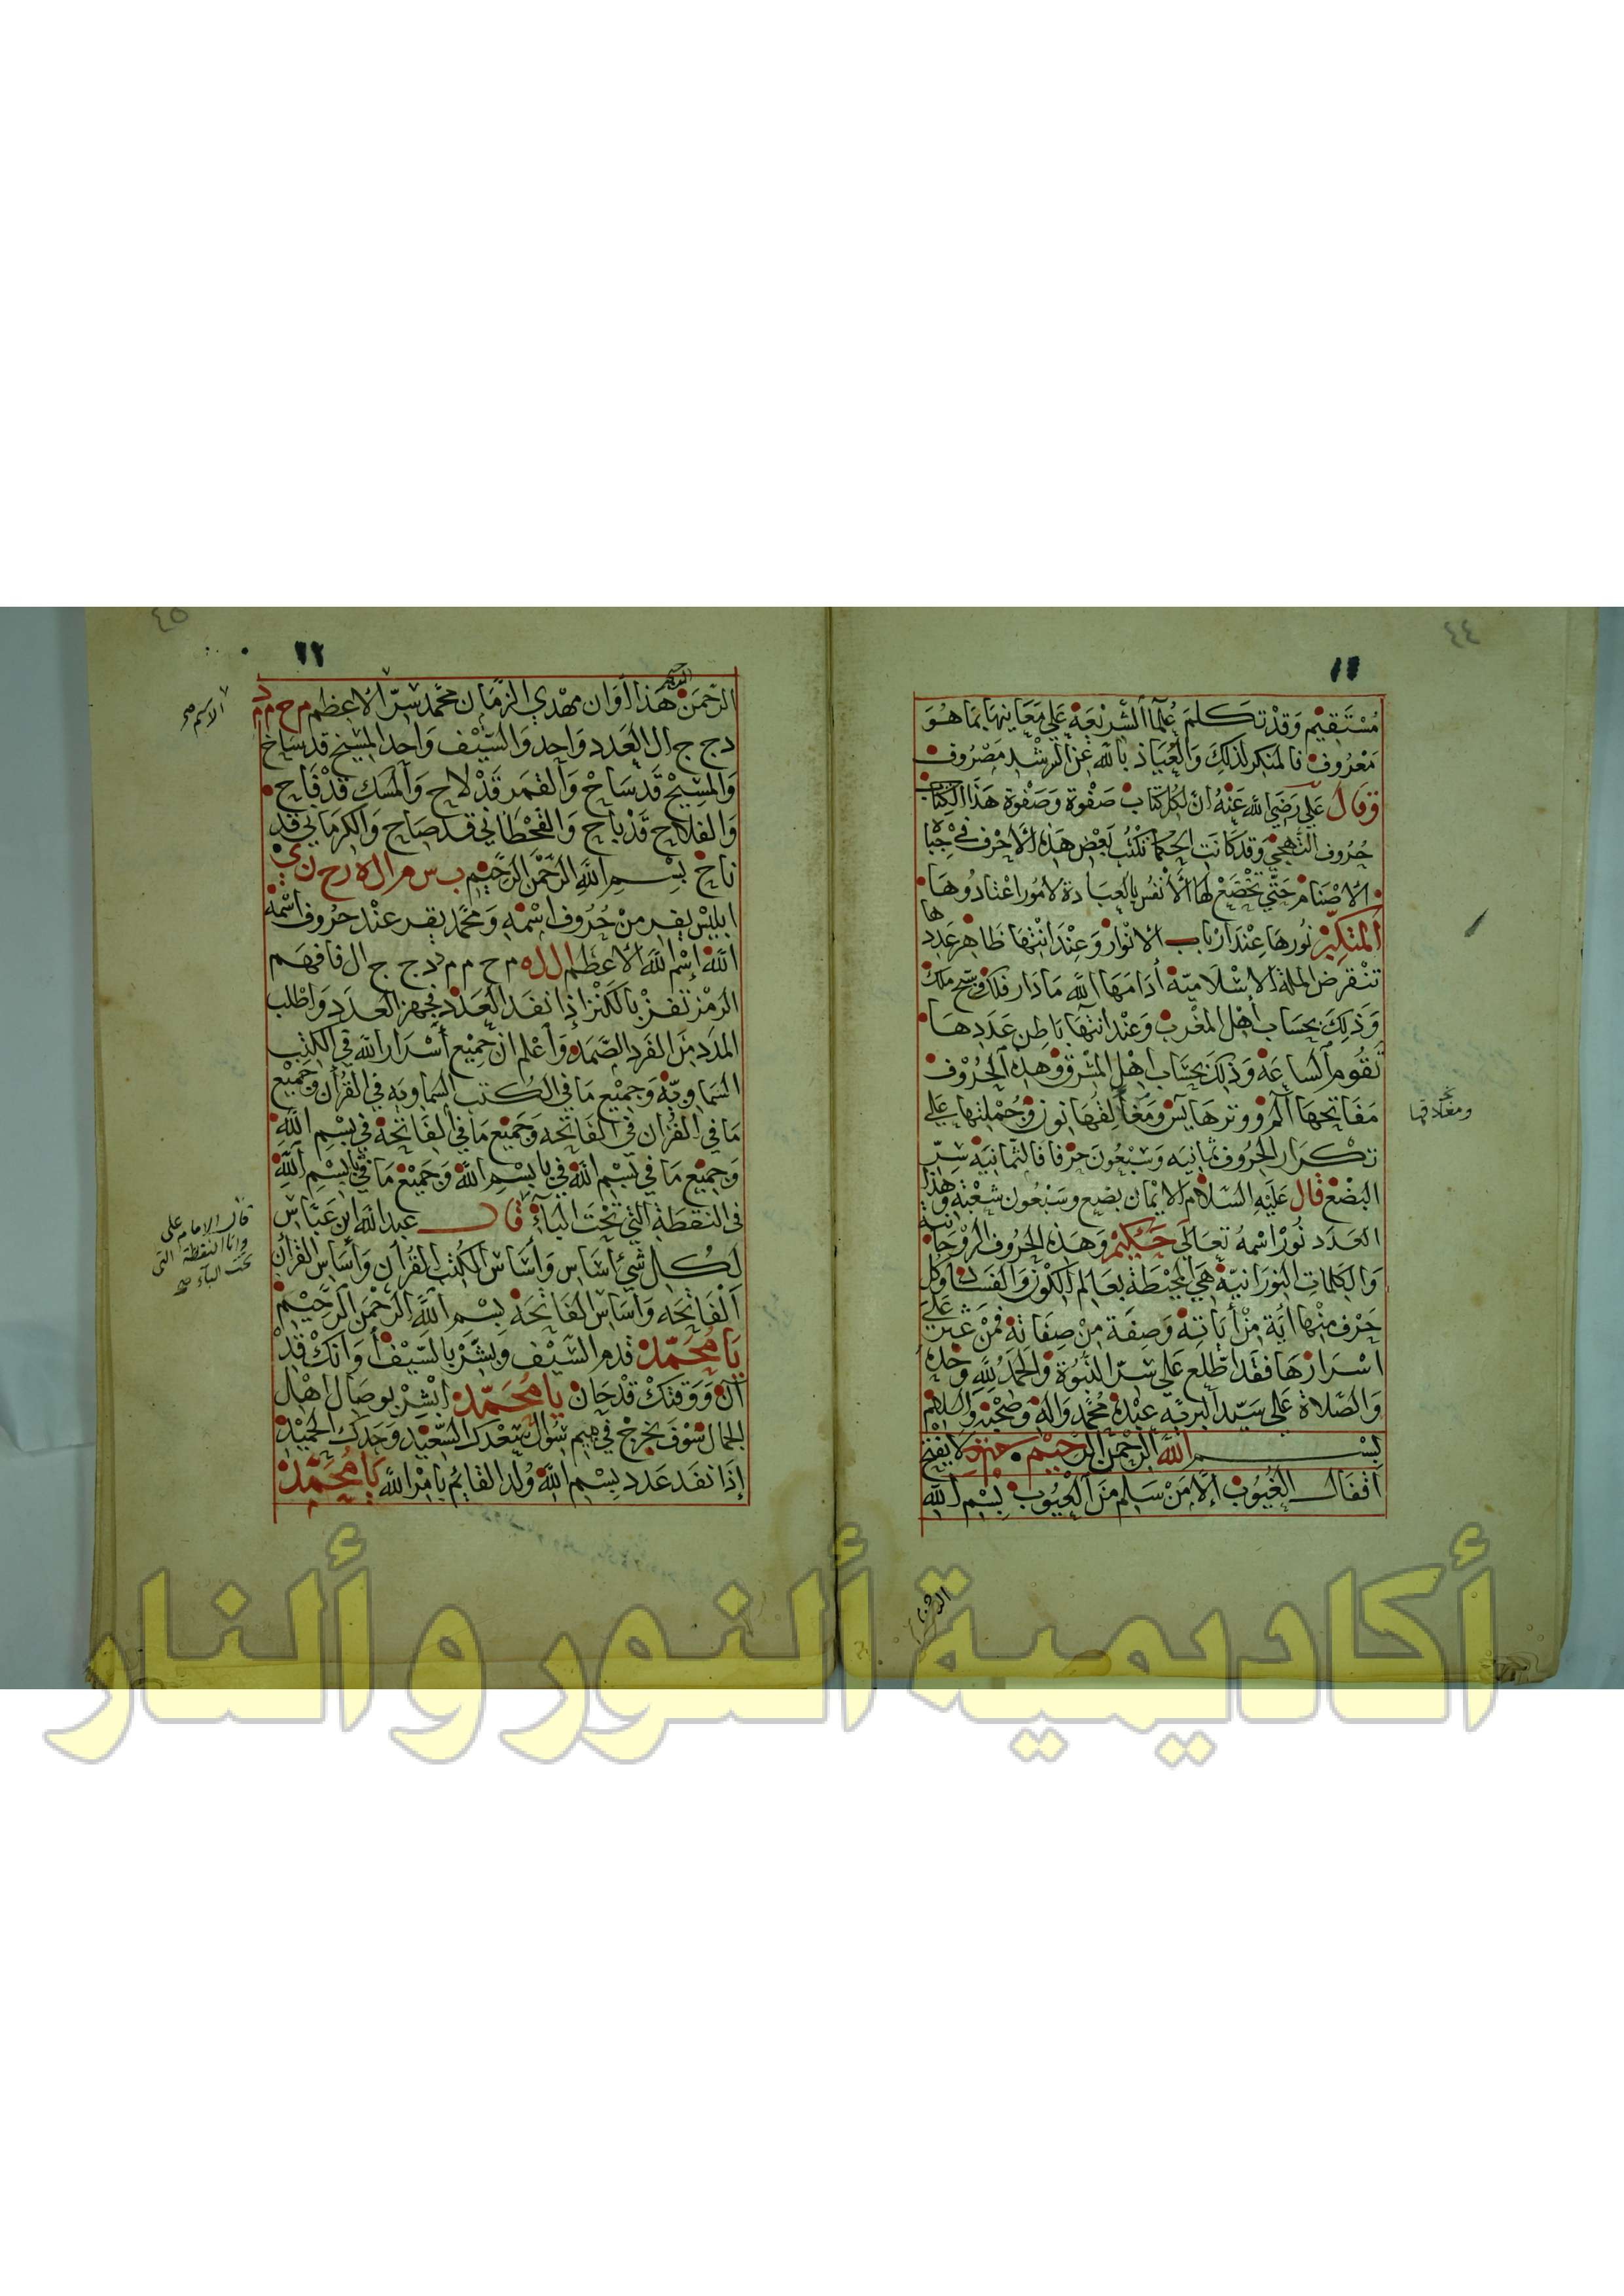 ٤٤
١١
مُسْتَقِيْم وَقَدْ تَكَلمَ عُلمَآ الشَّرِيْعَةِ عَلي مَعَانِيهَا بِمَا هُوَ
مَعْرُوف فَالمنكر لذَلِكَ وَالعِيَاذ بِاللَّه عَن الرشْدِ مَصْرُوف
وَقَالَ عَلي رَضي اللَّه عَنْهُ انّ لِكُل كتَاب صَفْوَة وَصَفْوَة هَذَا الكِتَاب
حُرُوف التَّهَجي وَقد كَانَت الحكمَآ تكْتُب بَعْض هَذِه الأَحْرُف فِي جِبَاه
الأصْنَام حَتَّي تخْضَعْ لهَا الأَنْفُس بِالعبَادة لامُور اعْتَادُوهَا
المتكبّر نُورهَا عِنْدَ ارْبَاب الانْوار وَعِنْدَ انْتِهَا ظَاهِر عَدَدهَا
تنْقرض الملة الاسْلَامِيّة أدَامَهَا اللَّه مَا دَار فلك وَسبّح ملك
وَذَلِكَ بحسَاب أهْل المغْرب وَعْند انتهَآ بَاطِن عَدَدِهَا
تَقُوم السَاعَة وَذَلِكَ بحسَاب اهْل المشْرق وَهذِه الحُرُوْف
مَفَاتِحهَا آلم وَوترهَا يس وَمَغَالِقهَا نون وَجُمْلتهَا عَلي
ومغلاقها
تكْرَار الحُرُوف ثمَانِيَه وَسَبْعُونَ حَرْفا فَالثمَانِيَة سِرّ
البضْع قَال عَلَيْهِ السَّلَام الايْمان بضْع وسَبْعُون شعْبَة وَهَذا
العَدَد نُوْر اسْمهُ تعَالَي حَكِيْم وَهَذِه الحُرُوف الرُوْحَانية
وَالكَلمَاتِ النورَانِيّة هي المحيْطَة بعَالم الكَوْن وَالفسَاد وَكل
حَرْف مِنْها آيَة مِنْ أيَاتِه وَصِفَة مِنْ صِفَاتِه فَمَنْ عثر عَلَي
اسْرَارهَا فقَد اطّلع عَلي سِرّ النبُوَة وَالحَمْدُ لِلَّهِ وَحْدَه
وَالصّلَاة عَلي سَيّد البَرِيّه عبْدِه مُحَمَّد وَالِه وَصَحْبِه وَالسلَام
بِسْــــم اللَّه الرَّحمْن الرحِيْم لا يَفْتَح
اقفَال الغُيُوب إلَّا مَنْ سَلِم مَن العُيُوب بِسْمِ اللَّه
الرحمن
٤٥
١٢
الرّحْمَن الرحيم هَذا أوَان مهْدِي الزّمَان محمَّد سِرّ الاعظم م ح م د
الاسم صح
د ج ج ال العَدد وَاحِد وَالسّيْف وَاحِد المشِيْح قد سَاخ
وَالمسِيْح قَد سَاحْ وَالقمَر قَدْ لاح وَالمسك قدْ فَاح
وَالفلاح قَدْ بَاح وَالقحْطَاني قد صَاح وَالكرمَاني قَد
ناخ بِسْــمِ اللَّهِ الرّحْمَن الرّحِيْم ب س م ال ل ه ر ح م ن ي
ابليْس يفِر مِنْ حُرُوف اسْمِه وَمحمَّد يقِر عنْد حرُوف اسْمِه
اللَّه إسْم اللَّه الأعْظَم ال ل ه م ح م م د ج ج ال فافهَم
الرمْز تفزْ بالكَنْز إذا نفَد العَدَد فجهز العدَدَ وَاطلب
المدَد مِنَ الفَرد الصَّمَد وَاعْلم انّ جَمِيْع أسْرَار اللَّه فِي الكتب
السَمَاوِيّة وَجَمِيْع مَا فِي الكُتب السَماويَه فِي القُرآن وَجَمِيْع
مَا فِي القُرْان فِي الفَاتحَه وَجَمِيْع مَا فِي الفَاتحَة فِي بِسْمِ اللَّه
وَجَمِيْع مَا فِي بِسْمِ اللَّه فِي بَا بِسْمِ اللَّه وَجَمِيْع مَا فِي بَا بِسْمِ اللَّه
فِي النقطَة التي تحْتَ البَآء قَالـــ عبد اللَّه ابن عَبّاس
قال الامام علي
وانا النقطة التي
تحت البآء صح
لكُـل شَيْ أسَاس وَأسَاس الكُتب القُرآن وَأسَاس القرأن
الفَاتحَه وَأسَاس الفَاتحَة بِسْمِ اللَّه الرّحمَن الرَّحِيْم
يَا مُحمّد قدم السّيْف وَبَشّر بالسّيْف أوَانكْ قَدْ
آن وَوَقتكْ قدْ حَان يا مُحَمّد ابْشِرْ بوصَال اهْل
الجمَال سَوْف يخْرجْ فِي مِيم سُوَل سَعْدكَ السّعِيْد وَجَدكَ الحميْد
إذَا نفَد عَدد بِسْمِ اللَّه وُلد القَايُم بامْر اللَّه يَا مُحَمّد
أكاديمية ألنور و ألنار